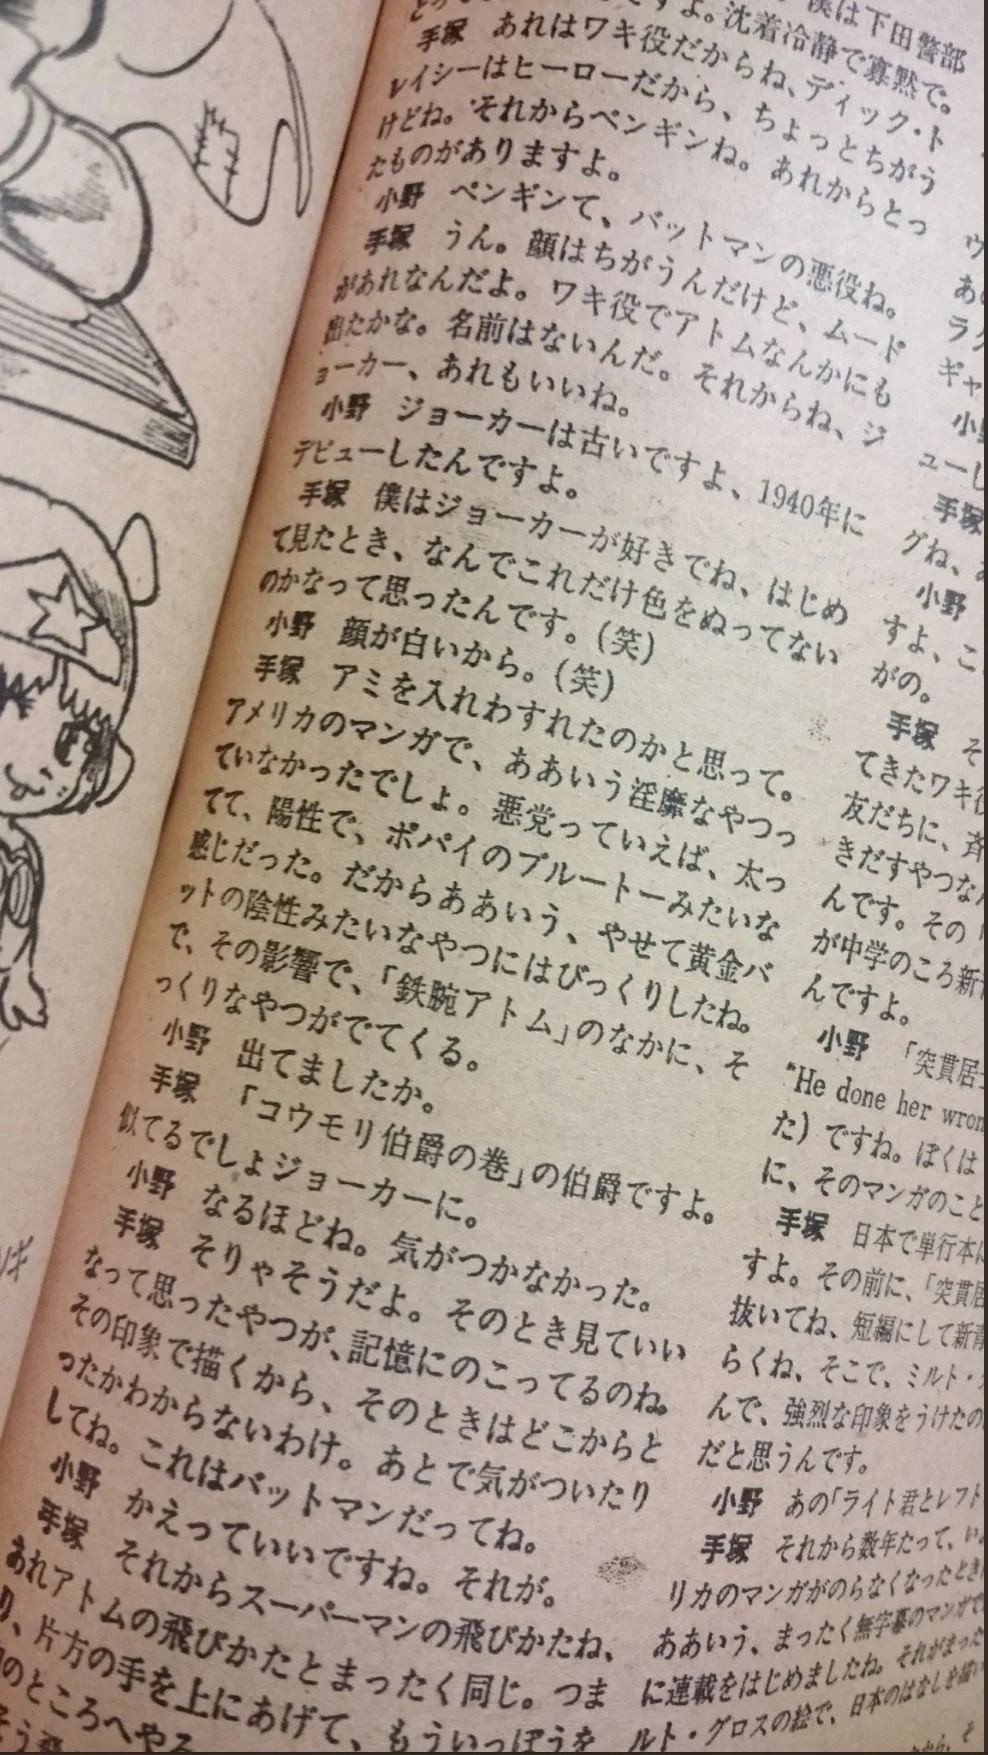 僕は下田警部
すよ。沈着冷静で寡黙で。
手塚　あれはワキ役だからね、ディック・ト
レイシーはヒーローだから、ちょっとちがう
けどね。それからペンギンね。あれからとっ
たものがありますよ。
小野　ペンギンて、バットマンの悪役ね。
手塚　うん。顔はちがうんだけど、ムード
があれなんだよ。ワキ役でアトムなんかにも
出たかな。名前はないんだ。それからね、ジ
ョーカー、あれもいいね。
小野　ジョーカーは古いですよ、1940年に
デビューしたんですよ。
手塚　僕はジョーカーが好きでね、はじめ
て見たとき、なんでこれだけ色をぬってない
のかなって思ったんです。（笑）
小野　顔が白いから。（笑）
手塚　アミを入れわすれたのかと思って。
アメリカのマンガで、ああいう淫靡なやつっ
ていなかったでしょ。悪党っていえば、太っ
てて、陽性で、ポパイのブルートーみたいな
感じだった。だからああいう、やせて黄金バ
ットの陰性みたいなやつにはびっくりしたね。
で、その影響で、「鉄腕アトム」のなかに、そ
っくりなやつがでてくる。
小野　出てましたか。
手塚　「コウモリ伯爵の巻」の伯爵ですよ。
似てるでしょジョーカーに。
小野　なるほどね。気がつかなかった。
手塚　そりゃそうだよ。そのとき見ていい
なって思ったやつが、記憶にのこってるのね。
その印象で描くから、そのときはどこからと
ったかわからないわけ。あとで気がついたり
してね。これはバットマンだってね。
小野　かえっていいですね。それが。
手塚　それからスーパーマンの飛びかたね、
あれアトムの飛びかたとまったく同じ。つま
り、片方の手を上にあげて、もういっぽうを
のところへやる
ウ
あ
ラ
ギャ
小野
ューし
手塚
グね、
小野
すよ、こ
がの。
手塚　そ
てきたワキ役
友だちに、斉
きだすやつなん
んです。その
が中学のころ新
んですよ。
小野　「突貫居
"He done her wron
た）ですね。ぼくは
に、そのマンガのこと
手塚　日本で単行本に
すよ。その前に、「突貫居
抜いてね、短編にして新青
らくね、そこで、ミルト・
んで、強烈な印象をうけたの
だと思うんです。
小野　あの「ライト君とレフト
手塚　それから数年たって、い
リカのマンガがのらなくなったとき
ああいう、まったく無字幕のマンガで
に連載をはじめましたね。それがまった
ルト・グロスの絵で、日本のはなしを描い